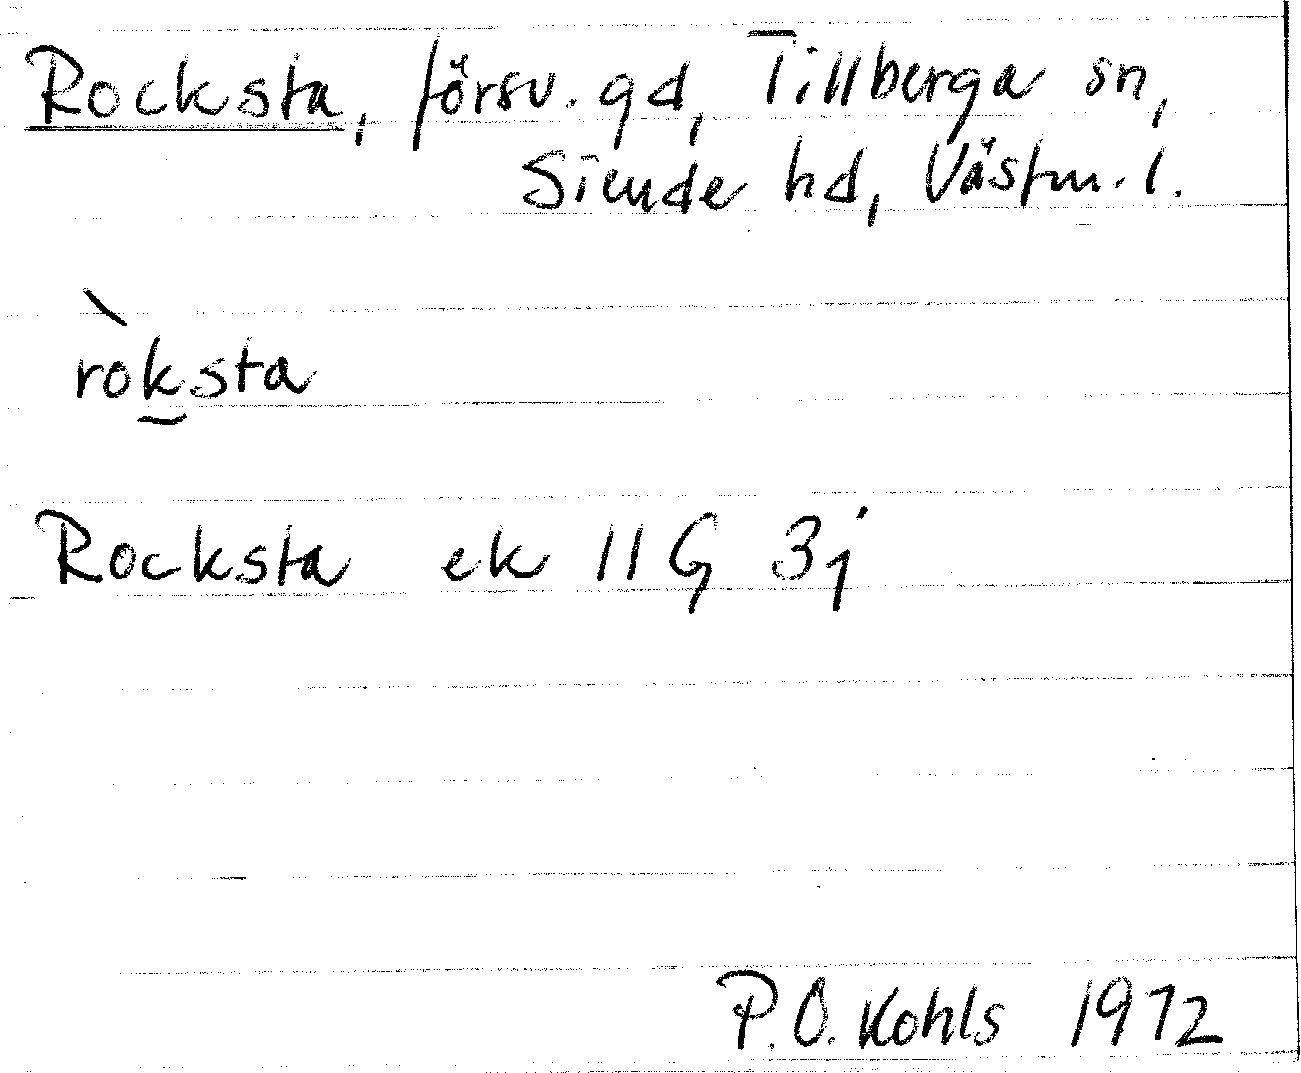 Rocksta, försv. gd, Tillberga sn,
Siende hd, Västm. l.
ròk̲sta
Rocksta ek 11G 3j
P.O. Kohls 1972